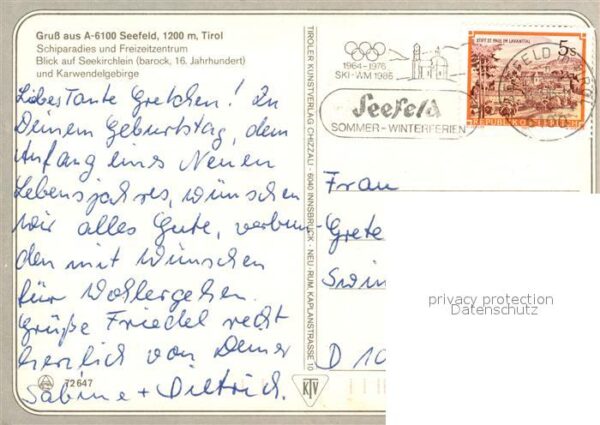 Gruß aus A-6100 Seefeld, 1200 m, Tirol
Schiparadies und Freizeitzentrum
Blick auf Seekirchlein (barock, 16. Jahrhundert)
und Karwendelgebirge
Liebes Tante Gretchen! Zu
Deinem Geburtstag, dem
Anfang eines Neuen
Lebensjahres, wünschen
wir alles Gute, verbun-
den mit Wünschen
für Wohlergehen.
Grüße Friedel recht
herzlich von Deiner
Sabine + Dietrich.
72647
TIROLER KUNSTVERLAG CHIZZALI · 6040 INNSBRUCK · NEU-RUM, KAPLANSTRASSE 10
KTV
1964-1976
SKI-WM 1985
Seefeld
SOMMER-WINTERFERIEN
STIFT ST. PAUL IM LAVANTTAL
5s
REPUBLIK
SEEFELD
6100
Frau
Grete
Swin
D 10
privacy protection
Datenschutz